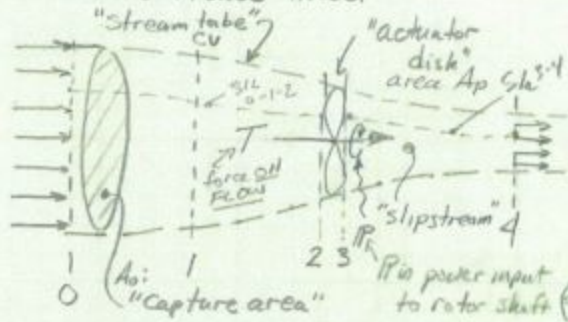 "stream tube"
CV
"actuator
disk"
area Ap
S/L 3-4
S/L
0-1-2
T
force ON
FLOW
"slipstream"
0
1
2 3
4
A0:
"Capture area"
P in power input
to rotor shaft